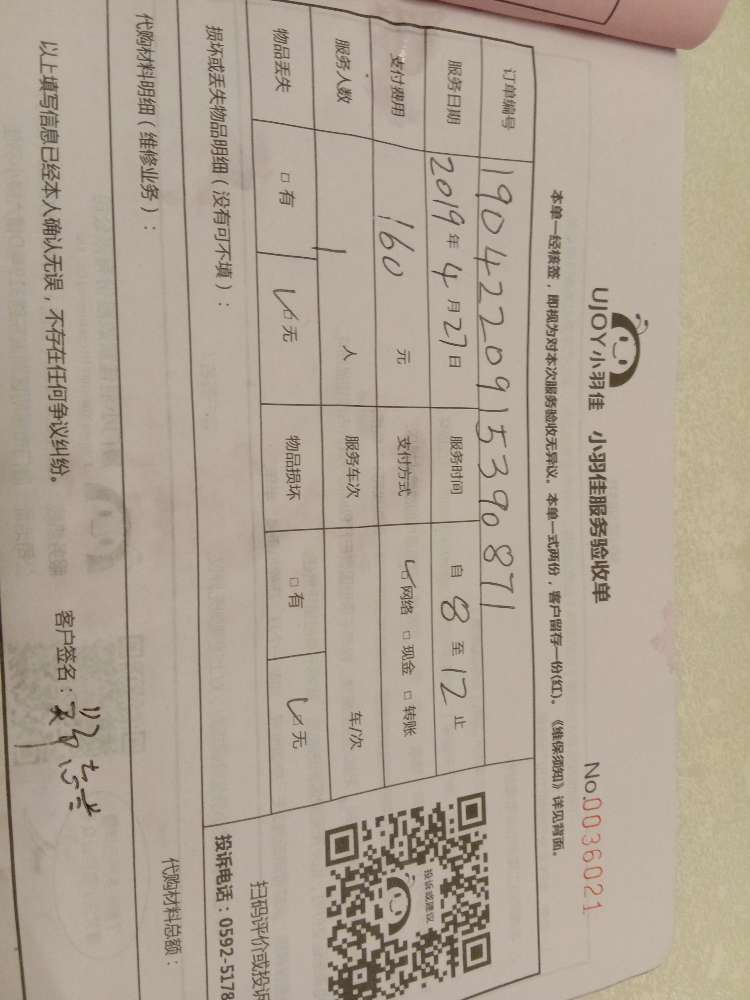 UJOY小羽佳 小羽佳服务验收单
No.0036021
本单一经核签，即视为对本次服务验收无异议。本单一式两份，客户留存一份(红)。《维保须知》详见背面。
订单编号 190422091539087 1
服务日期 2019年4月27日 服务时间 自8至12止
支付费用 160元 支付方式 ☑网络 □现金 □转账
服务人数 1人 服务车次 车/次
物品丢失 □有 ☑无 物品损坏 □有 ☑无
投诉或建议
扫码评价或投诉
投诉电话：0592-5178
损坏或丢失物品明细（没有可不填）：
代购材料明细（维修业务）：
代购材料总额：
以上填写信息已经本人确认无误，不存在任何争议纠纷。
客户签名：